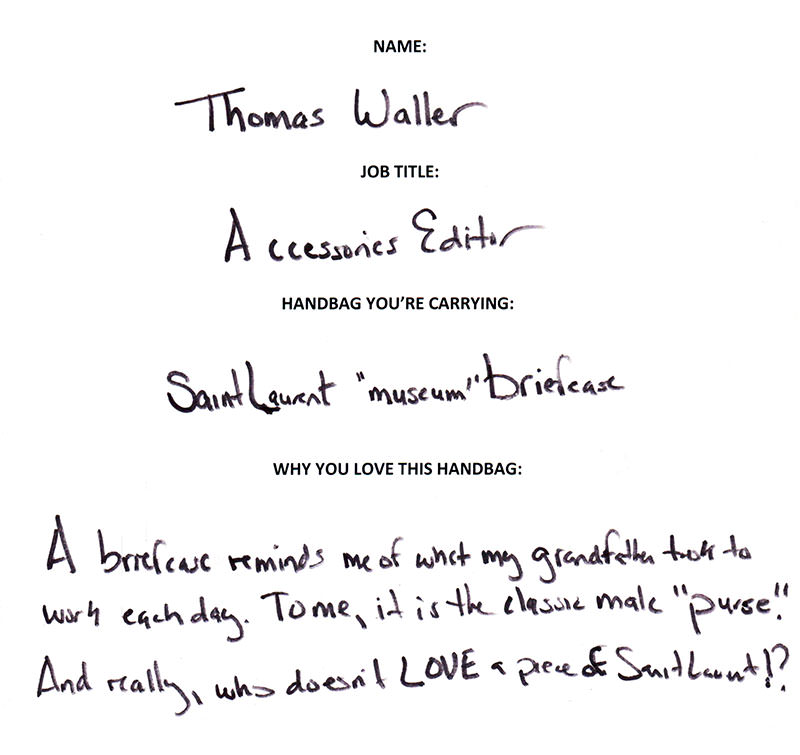 NAME:
Thomas Waller
JOB TITLE:
Accessories Editor
HANDBAG YOU'RE CARRYING:
Saint Laurent "museum" briefcase
WHY YOU LOVE THIS HANDBAG:
A briefcase reminds me of what my grandfather took to
work each day. To me, it is the classic male "purse."
And really, who doesn't LOVE a piece of Saint Laurent!?